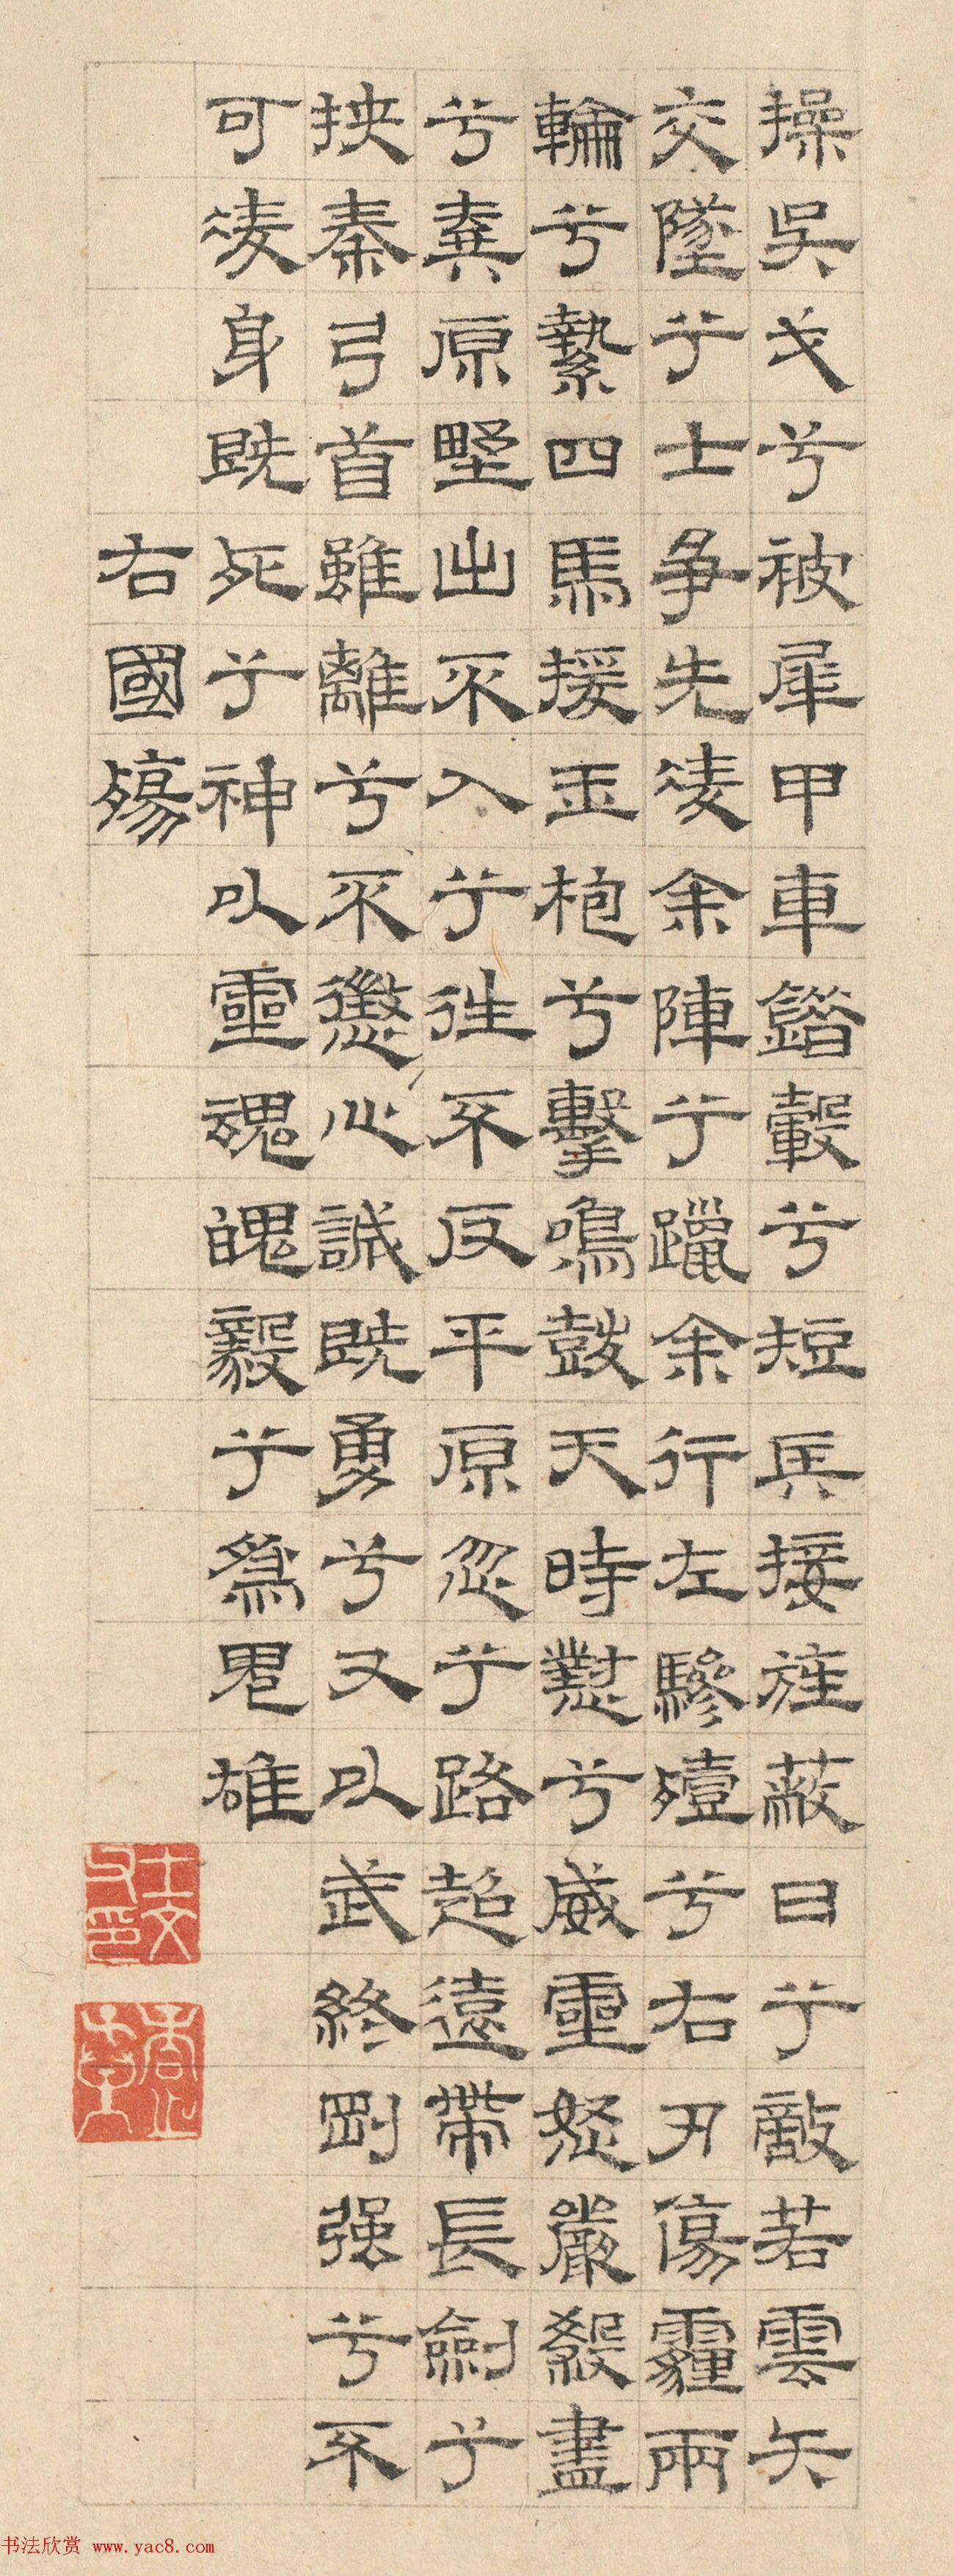 操吳戈兮被犀甲車錯轂兮短兵接旌蔽日兮敵若雲矢
交墜兮士爭先凌余陣兮躐余行左驂殪兮右刃傷霾兩
輪兮縶四馬援玉枹兮擊鳴鼓天時懟兮威靈怒嚴殺盡
兮棄原壄出不入兮往不反平原忽兮路超遠帶長劍兮
挾秦弓首雖離兮不懲心誠既勇兮又以武終剛强兮不
可凌身既死兮神以靈魂魄毅兮爲鬼雄
右國殤
书法欣赏 www.yac8.com